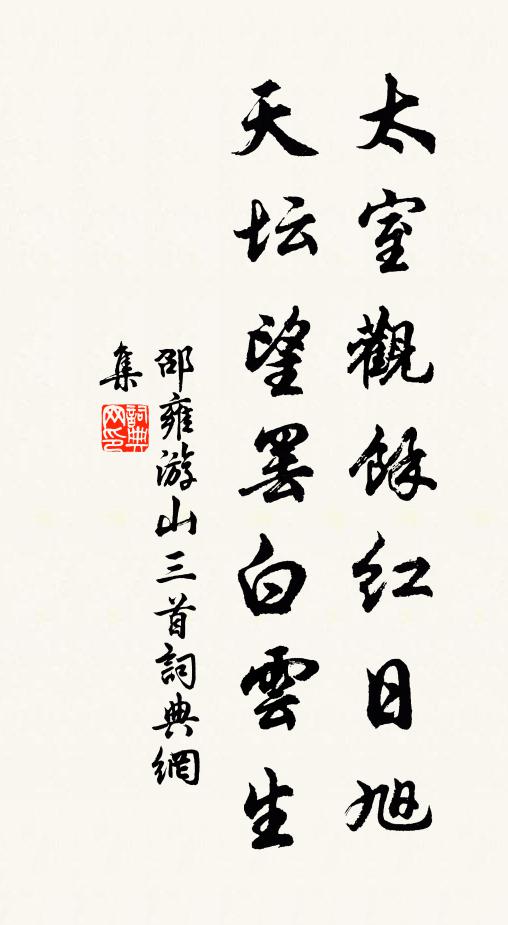 太室觀餘紅日旭
天坛望罢白雲生
邵雍游山三首詞典網
集
詞典
网印